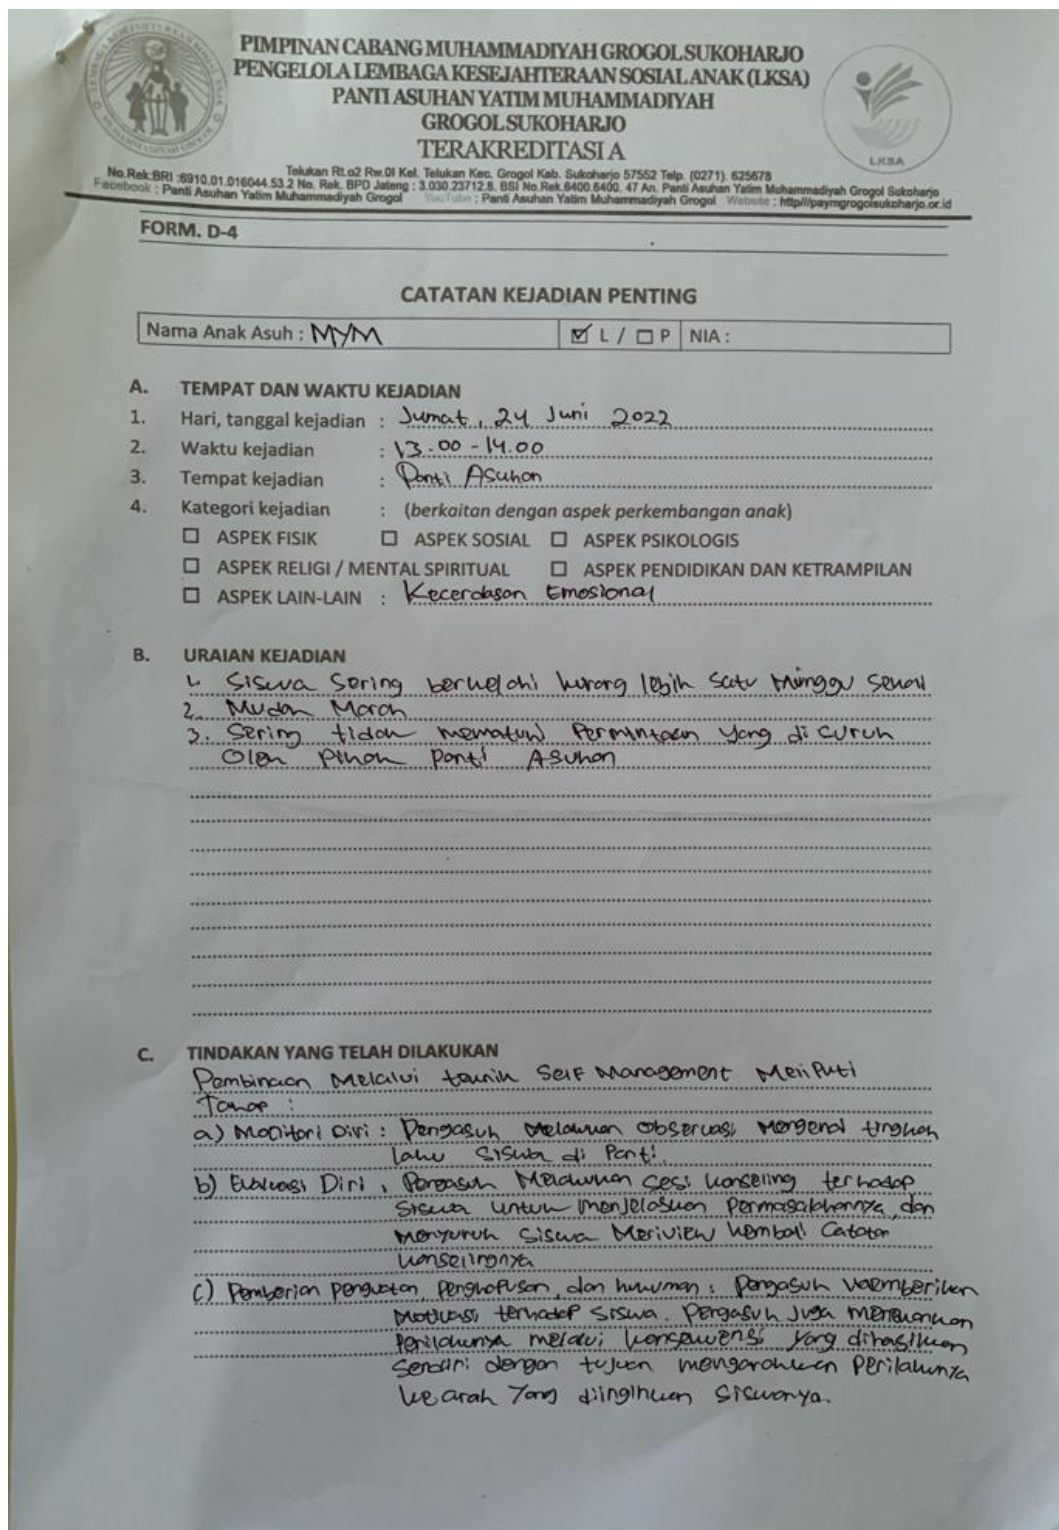 PIMPINAN CABANG MUHAMMADIYAH GROGOL SUKOHARJO
PENGELOLA LEMBAGA KESEJAHTERAAN SOSIAL ANAK (LKSA)
PANTI ASUHAN YATIM MUHAMMADIYAH
GROGOL SUKOHARJO
TERAKREDITASI A
LKSA
Telukan Rt.02 Rw.01 Kel. Telukan Kec. Grogol Kab. Sukoharjo 57552 Telp. (0271). 625678
No.Rek:BRI :6910.01.016044.53.2 No. Rek. BPD Jateng : 3.030.23712.8. BSI No.Rek.6400.6400. 47 An. Panti Asuhan Yatim Muhammadiyah Grogol Sukoharjo
Facebook : Panti Asuhan Yatim Muhammadiyah Grogol YouTube : Panti Asuhan Yatim Muhammadiyah Grogol Website : http///paymgrogolsukoharjo.or.id
FORM. D-4
CATATAN KEJADIAN PENTING
Nama Anak Asuh : MYM ☑ L / ☐ P NIA :
A. TEMPAT DAN WAKTU KEJADIAN
1. Hari, tanggal kejadian : Jumat, 24 Juni 2022
2. Waktu kejadian : 13.00 - 14.00
3. Tempat kejadian : Panti Asuhan
4. Kategori kejadian : (berkaitan dengan aspek perkembangan anak)
☐ ASPEK FISIK ☐ ASPEK SOSIAL ☐ ASPEK PSIKOLOGIS
☐ ASPEK RELIGI / MENTAL SPIRITUAL ☐ ASPEK PENDIDIKAN DAN KETRAMPILAN
☐ ASPEK LAIN-LAIN : Kecerdasan Emosional
B. URAIAN KEJADIAN
1. Siswa Sering berkelahi kurang lebih satu minggu sekali
2. Mudah Marah
3. Sering tidak mematuhi Permintaan yang di suruh
Oleh Pihak Panti Asuhan
C. TINDAKAN YANG TELAH DILAKUKAN
Pembinaan Melalui teknik Self Management Meliputi
Tahap :
a) Monitori Diri : Pengasuh Melakukan observasi Mengenai tingkah
laku Siswa di Panti.
b) Evaluasi Diri , Pengasuh Melakukan sesi konseling terhadap
Siswa untuk menjelaskan Permasalahannya, dan
Menyuruh Siswa Meriview kembali Catatan
konselingnya
c) Pemberian penguatan, penghapusan, dan hukuman : Pengasuh memberikan
Motivasi terhadap Siswa. Pengasuh Juga
Perilakunya melalui konsekuensi yang dihasilkan
Sendiri dengan tujuan mengarahkan Perilakunya
ke arah Yang diinginkan Siswanya.